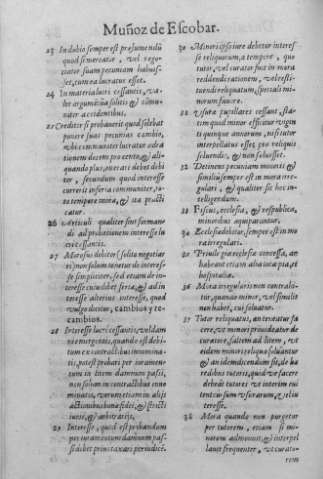 Muñoz de Escobar.
23 In dubio semper est præsumendũ
quod si mercator, vel nego-
tiator suam pecuniam habuis-
set, cum ea lucratus esset.
24 In materia lucri cessantis, va-
let argumẽtũ à solitis & cõmu-
niter accidentibus.
25 Creditor si probauerit quod solebat
ponere suas pecunias cambio,
aliquando plus, ei debet
ri, secundum quod interesse
currerit in feria communiter, to-
to tempore moræ, & ita practi
catur.
26 Articuli qualiter sint forman-
di ad probandum interesse lu
cri cessantis.
27 Morosus debitor (solito negotiar
e) non solum tenetur de interes-
se simpliciter, sed etiam de in-
teresse cuiuslibet feriæ, & ad in-
teresse alterius interesse, quod
vulgo dicitur, cambios y re-
cambios.
28 Interesse lucri cessantis, vel dam
ni emergentis, quando est debi-
tum ex contractibus innomina-
tis, potest probari per iuramen-
tum in litem damnum passi,
non solum in contractibus inno
minatis, verum etiam in aliis
actionibus bonæ fidei, & stricti
iuris, & arbitrariis.
29 Interesse, quod est probandum
per iuramentum damnum pas-
si debet prius taxari per iudicẽ.
30 Minori ipso iure debetur interes
se reliquorum, à tempore, quo
tutor, vel curator fuit in mora
reddendi rationem, vel resti-
tuendi reliquatum, spetialis mi-
norum fauore.
32 Vsuræ pupillares cessant, sta-
tim quod minor efficitur vigin
ti quinque annorum, nisi tutor
interpellatus esset pro reliquis
soluendis, & non soluisset.
32 Detinens pecuniam minoris &
similiũ semper est in mora irre-
gulari, & qualiter sit hoc in-
telligendum.
33 Fiscus, ecclesia, & respublica,
minoribus æquiparantur.
34 Ecclesiæ debitor, semper est in mo
ra irregulari.
35 Priuilegia ecclesiæ concessa, an
habeant etiam alia loca pia, et
hospitalia.
36 Mora irregularis non contrahi-
tur, quando minor, vel similis
non habet, cui soluatur.
37 Tutor reliquatus, an teneatur fa
cere, vt minori prouideatur de
curatore, saltem ad litem, vt
eidem minori reliqua soluantur
& an idem dicendum sit, de hæ
redibus tutoris, quid ve facere
debeat tutores vt interim eui
tent cursum vsurarum, & eius
teresse.
38 Mora quando non purgetur
per tutorem, etiam si mi-
norem admoneat, & interpel
laues frequenter, vt curato-
rem